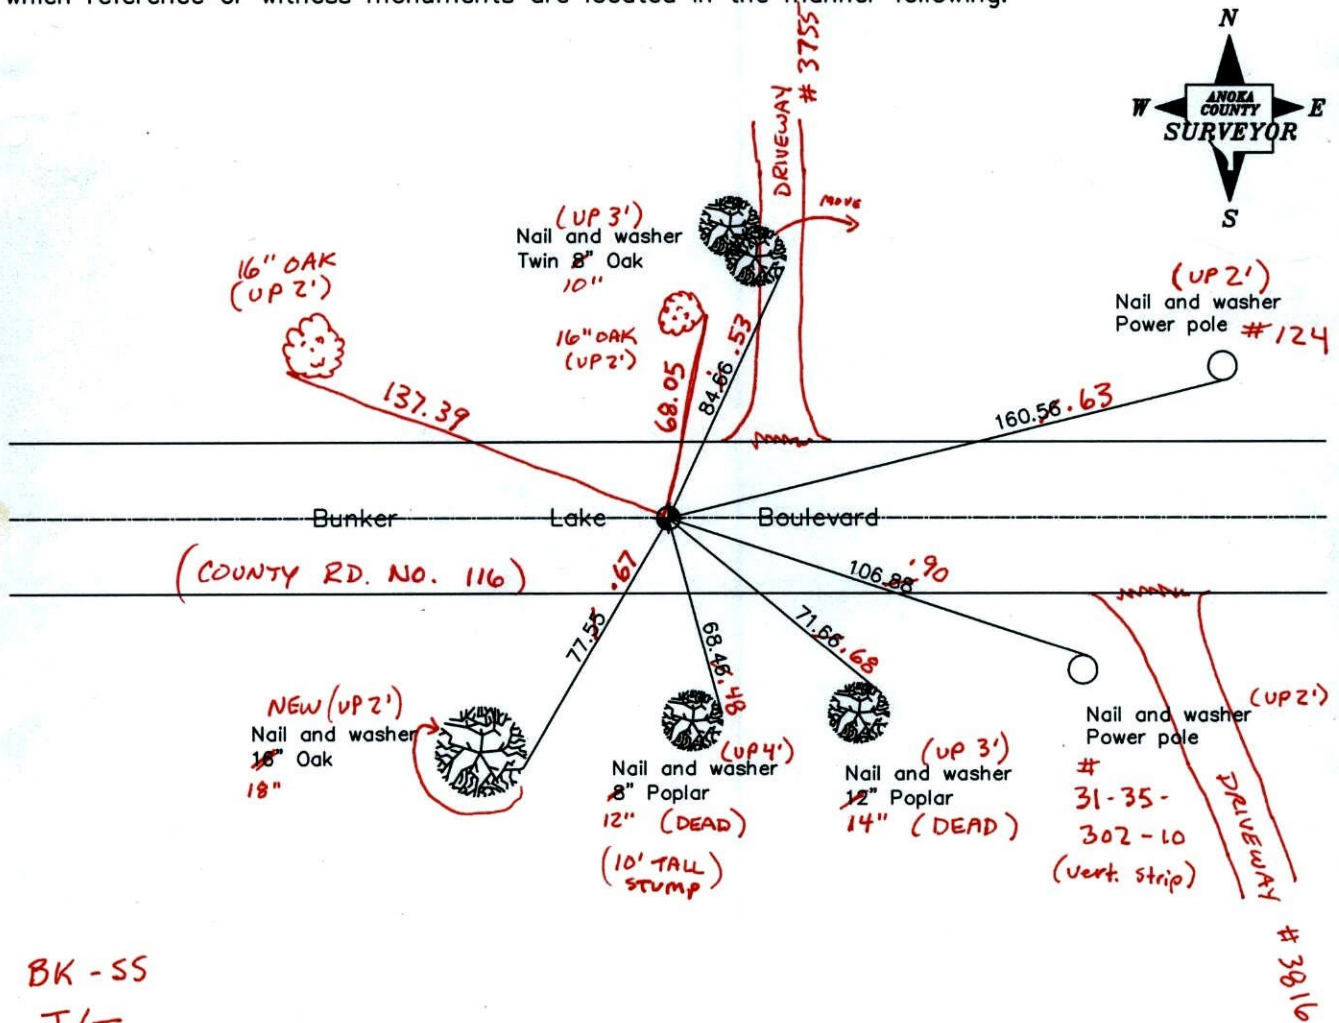 which reference or witness monuments are located in the manner following:
# 3755
DRIVEWAY
N
W
ANOKA
COUNTY
SURVEYOR
E
S
MOVE
(UP 3')
Nail and washer
Twin 8" Oak
10"
16" OAK
(UP 2')
16" OAK
(UP 2')
(UP 2')
Nail and washer
Power pole # 124
137.39
68.05
84.66 .53
160.56 .63
Bunker Lake Boulevard
(COUNTY RD. NO. 116)
77.55 .67
68.46 .48
71.66 .68
106.88 .90
NEW (UP 2')
Nail and washer
16" Oak
18"
(UP 4')
Nail and washer
8" Poplar
12" (DEAD)
(10' TALL
STUMP)
(UP 3')
Nail and washer
12" Poplar
14" (DEAD)
(UP 2')
Nail and washer
Power pole
#
31-35-
302-10
(vert. strip)
DRIVEWAY
# 3816
BK - SS